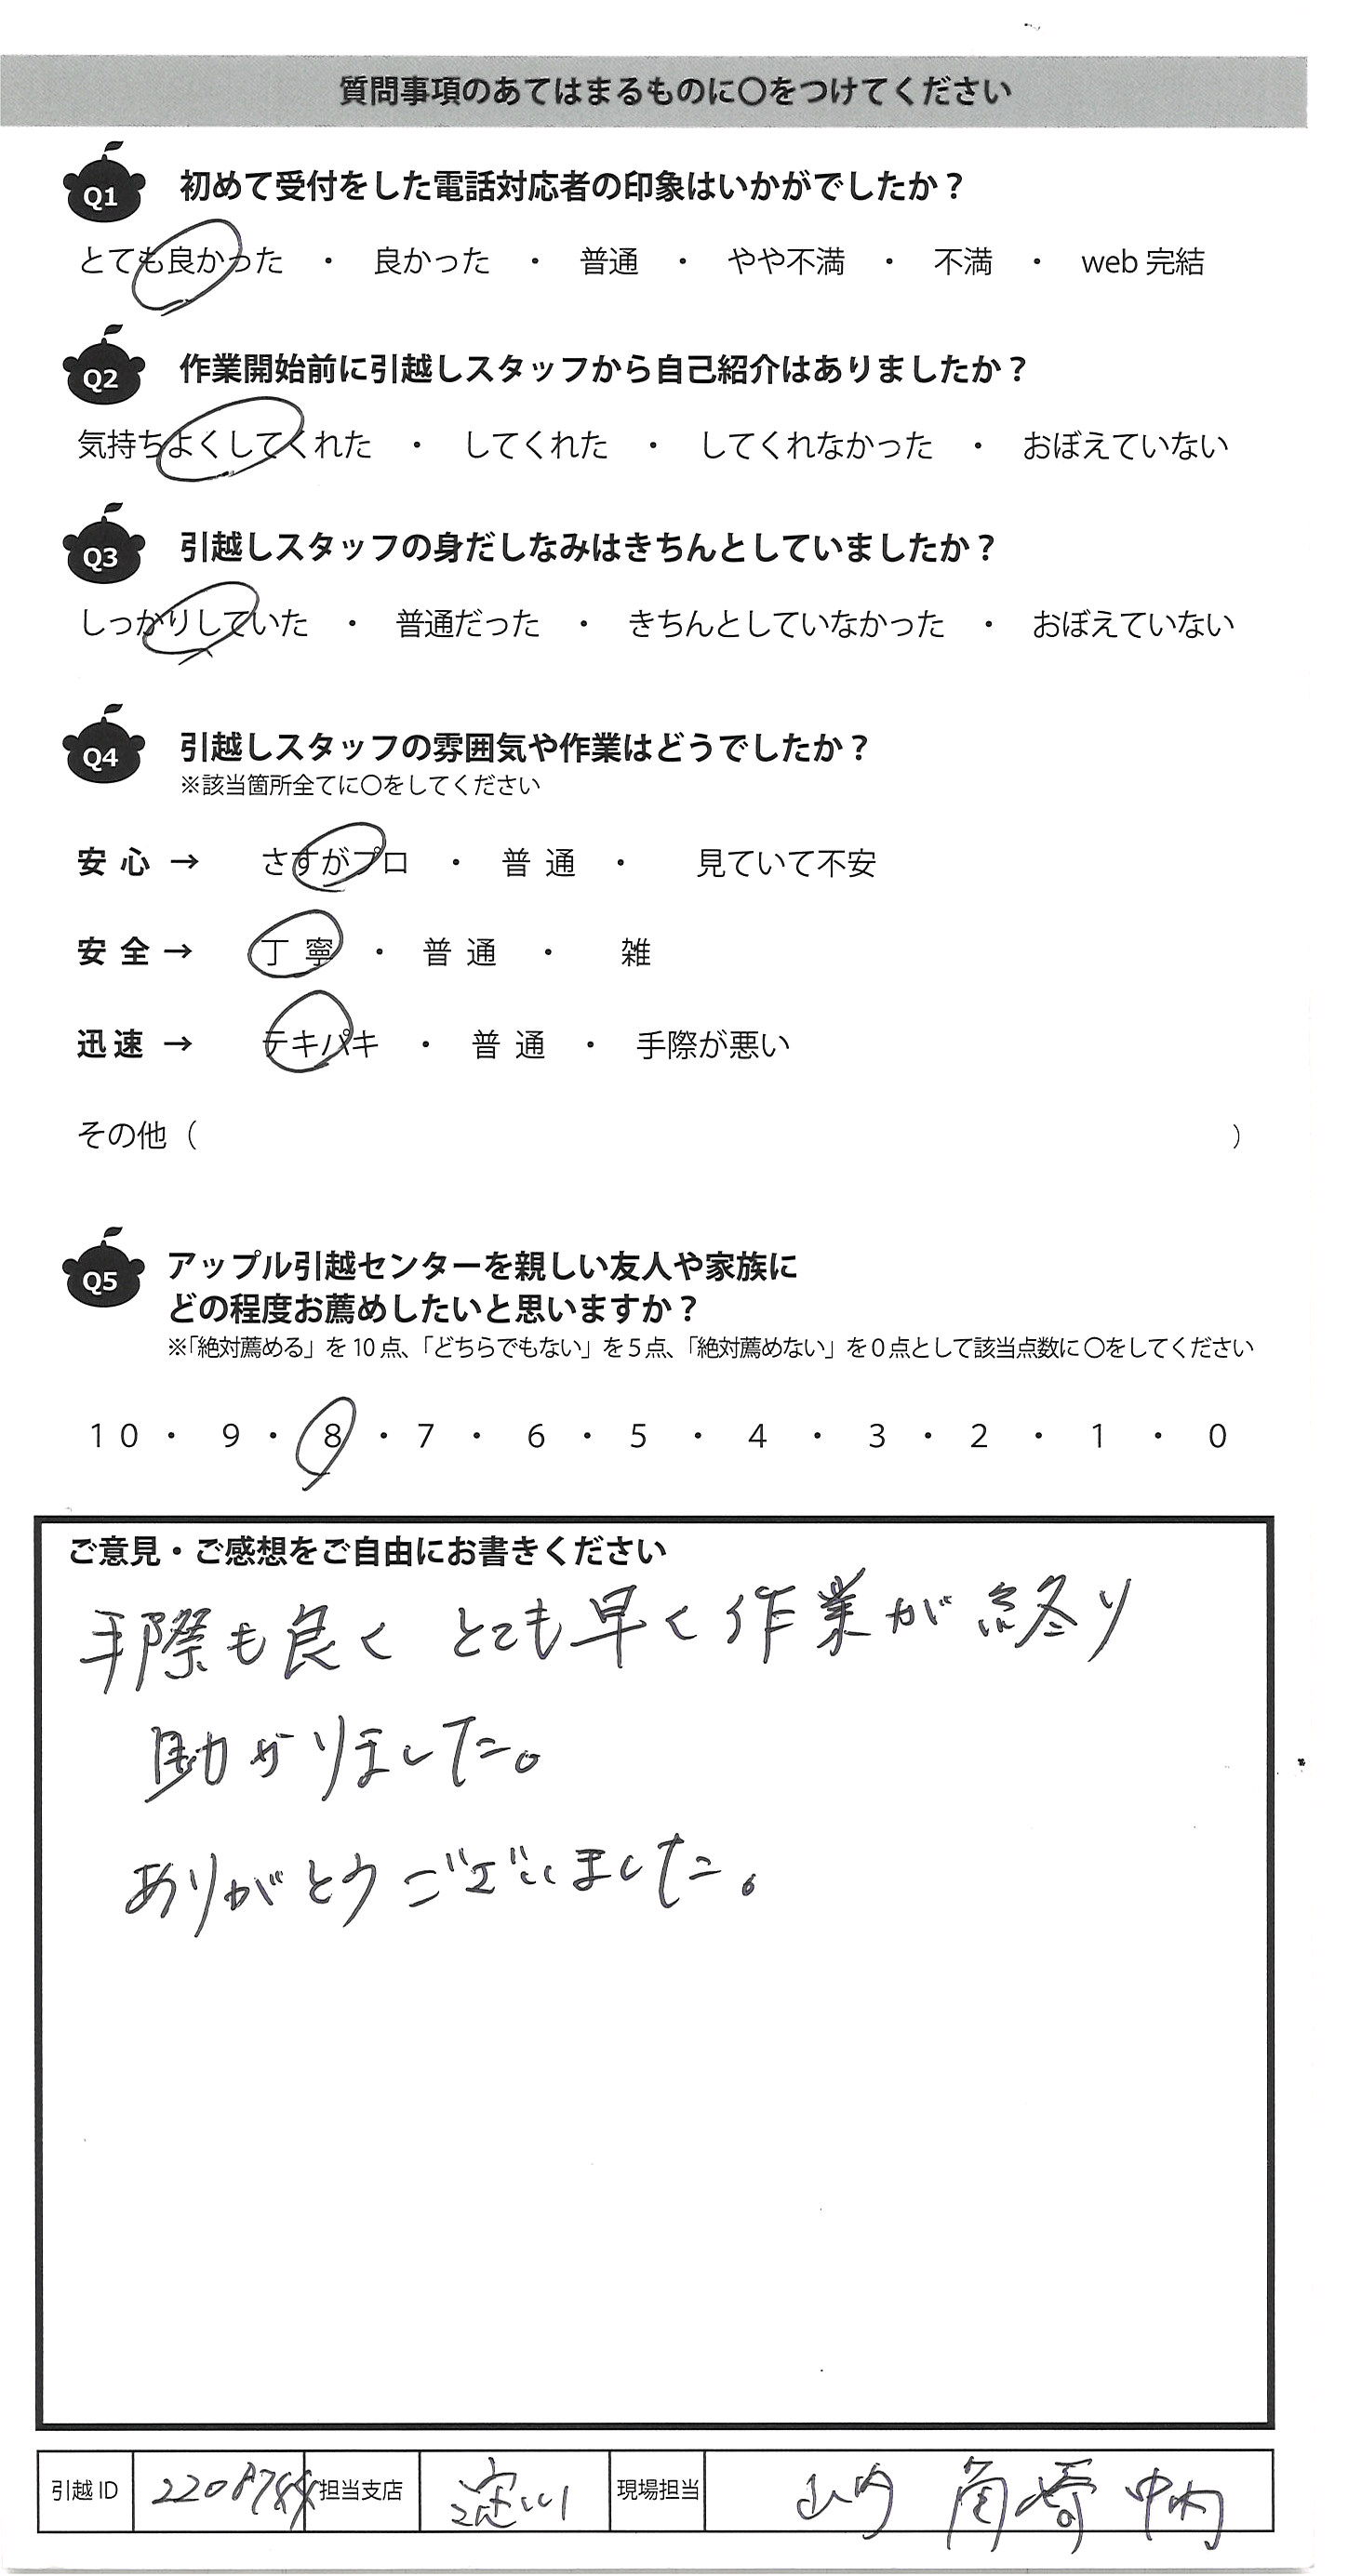 質問事項のあてはまるものに〇をつけてください
Q1 初めて受付をした電話対応者の印象はいかがでしたか？
とても良かった ・ 良かった ・ 普通 ・ やや不満 ・ 不満 ・ web 完結
Q2 作業開始前に引越しスタッフから自己紹介はありましたか？
気持ちよくしてくれた ・ してくれた ・ してくれなかった ・ おぼえていない
Q3 引越しスタッフの身だしなみはきちんとしていましたか？
しっかりしていた ・ 普通だった ・ きちんとしていなかった ・ おぼえていない
Q4 引越しスタッフの雰囲気や作業はどうでしたか？
※該当箇所全てに〇をしてください
安心 → さすがプロ ・ 普通 ・ 見ていて不安
安全 → 丁寧 ・ 普通 ・ 雑
迅速 → テキパキ ・ 普通 ・ 手際が悪い
その他（ ）
Q5 アップル引越センターを親しい友人や家族に
どの程度お薦めしたいと思いますか？
※「絶対薦める」を 10 点、「どちらでもない」を 5 点、「絶対薦めない」を 0 点として該当点数に 〇をしてください
10 ・ 9 ・ 8 ・ 7 ・ 6 ・ 5 ・ 4 ・ 3 ・ 2 ・ 1 ・ 0
ご意見・ご感想をご自由にお書きください
手際も良く とても早く作業が終り
助かりました。
ありがとうございました。
引越 ID 担当支店 淀川 現場担当